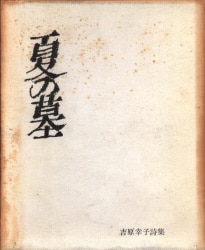 夏の墓
吉原幸子詩集